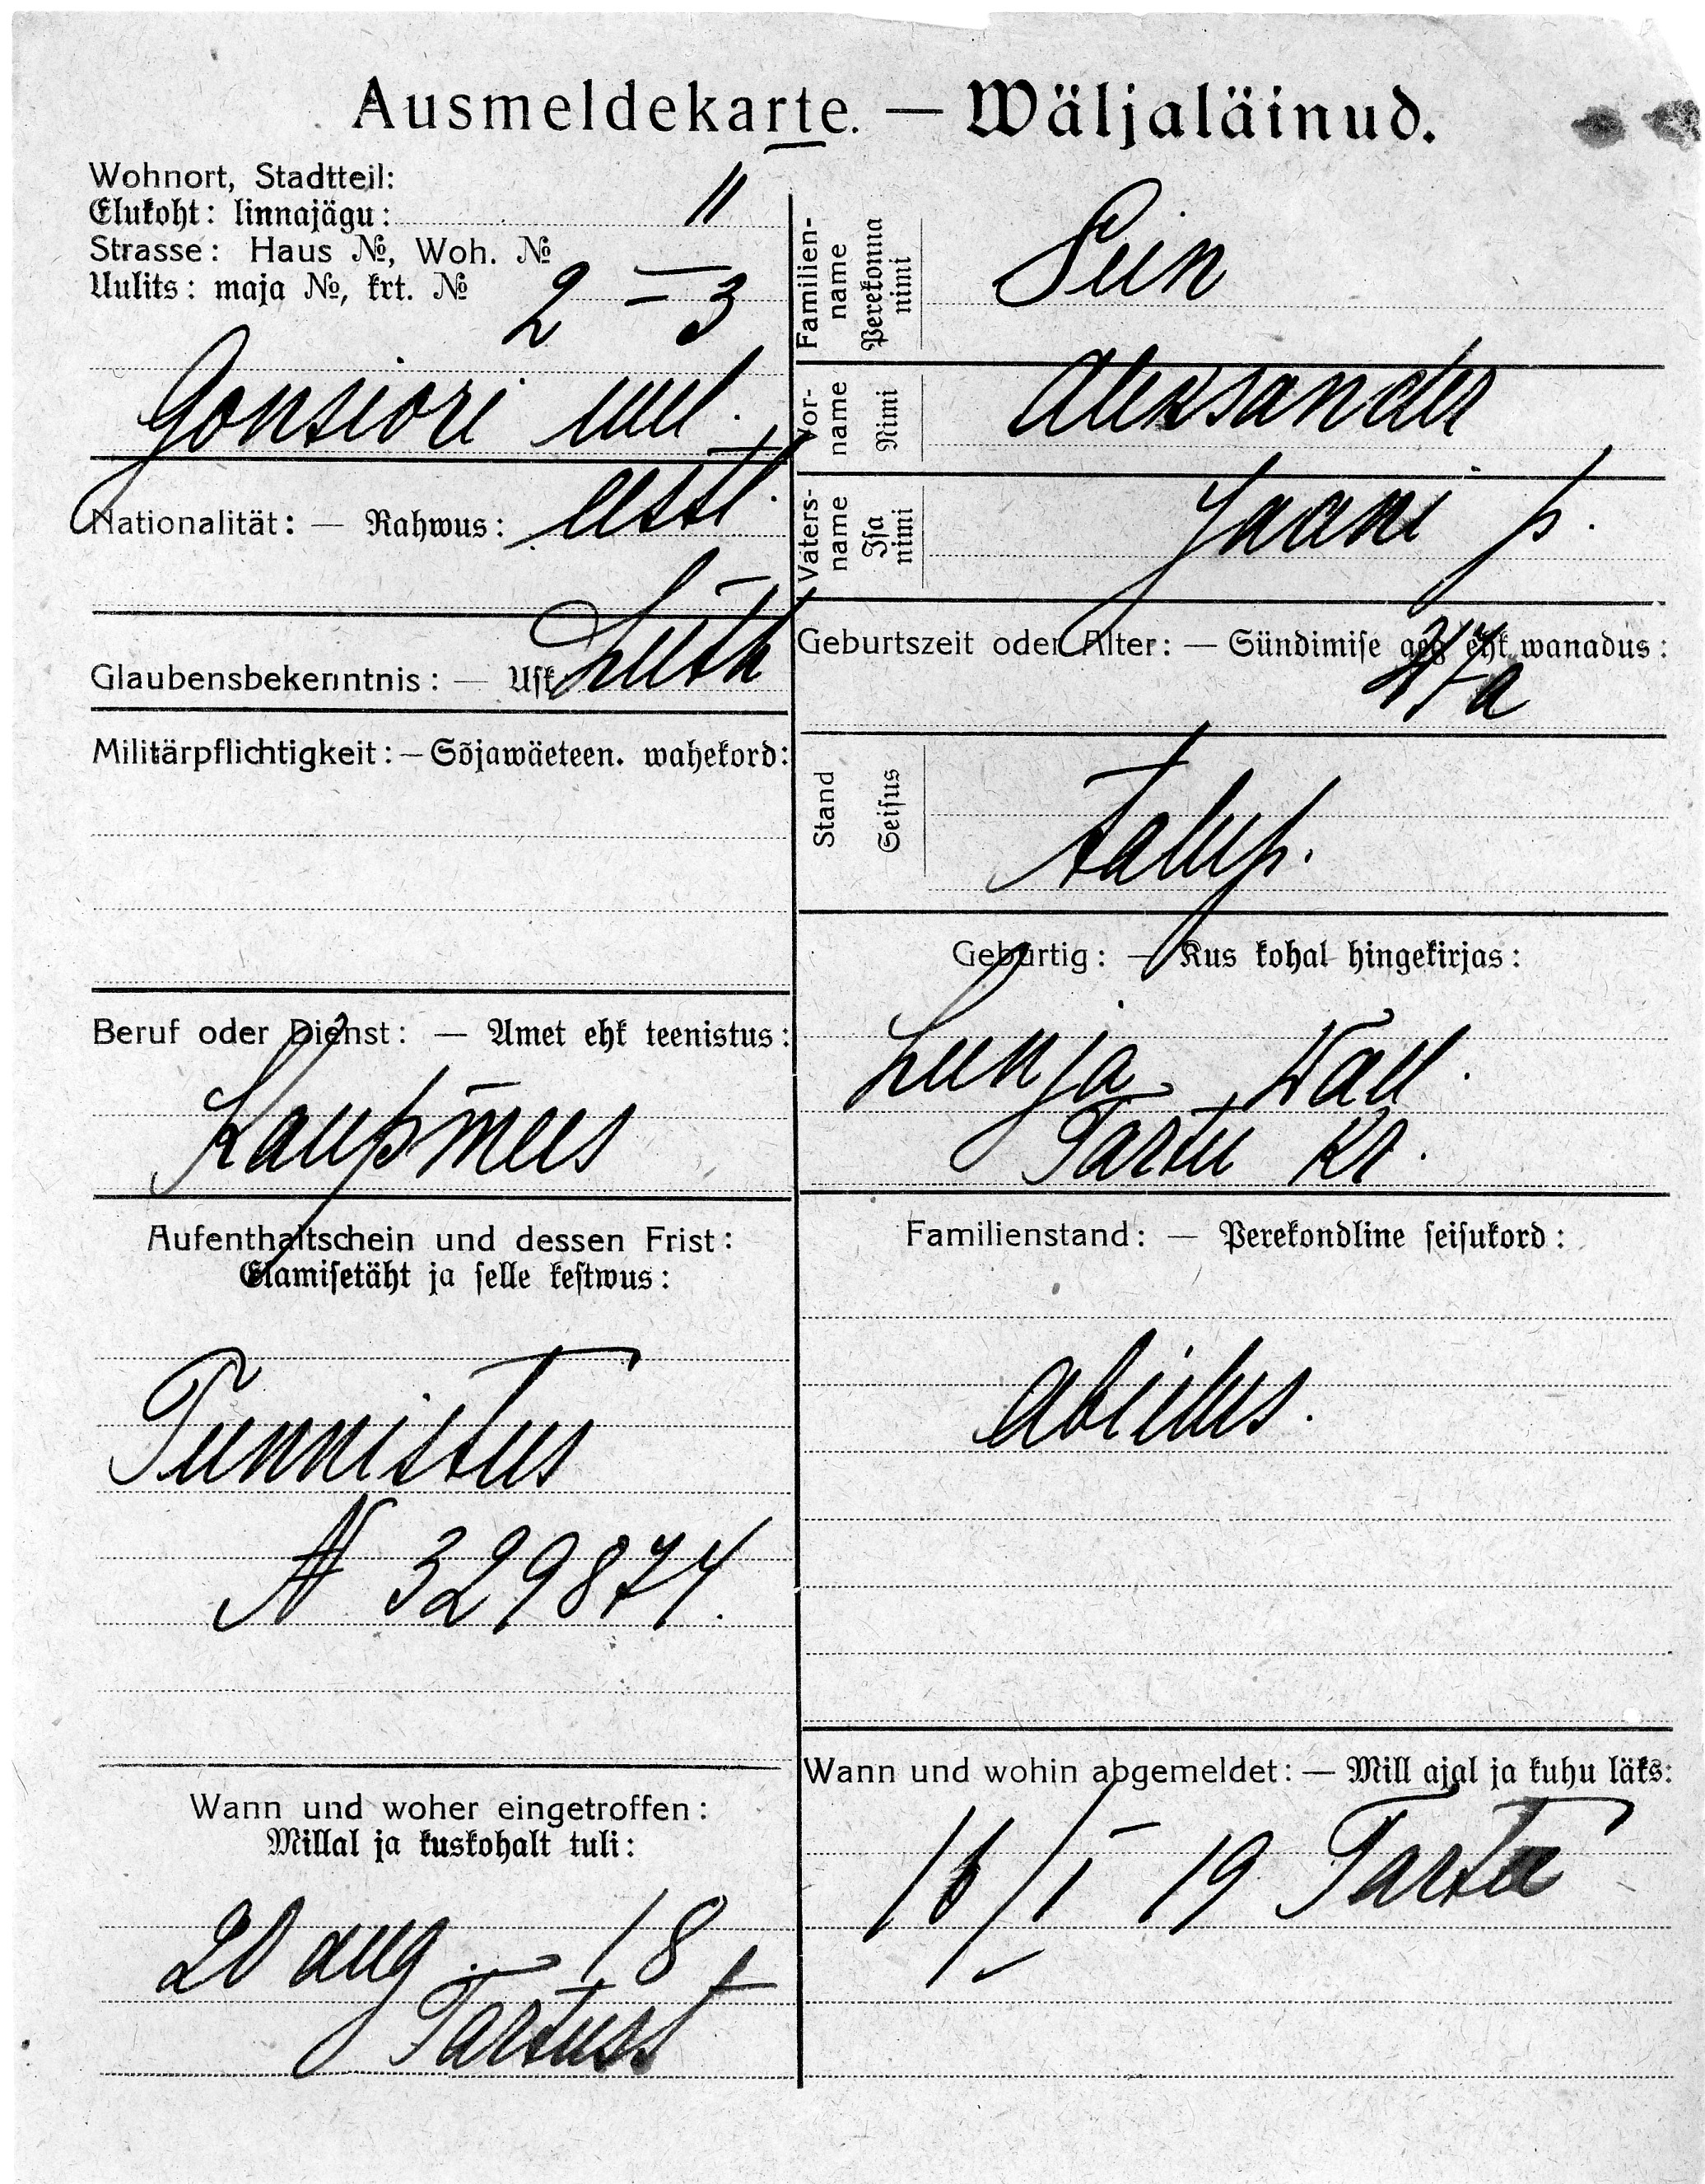 Ausmeldekarte. — Wäljaläinud.
Wohnort, Stadtteil:
Elukoht: linnajägu: II
Strasse: Haus №, Woh. №
Uulits: maja №, krt. № 2 – 3
Gonsiori uul.
Nationalität: — Rahwus: eestl.
Glaubensbekenntnis: — Usk Luth
Militärpflichtigkeit: — Sõjawäeteen. wahekord:
Beruf oder Dienst: — Amet ehk teenistus:
Kaupmees
Aufenthaltschein und dessen Frist:
Elamisetäht ja selle kestwus:
Tunnistus
N 329874.
Wann und woher eingetroffen:
Millal ja kuskohalt tuli:
20 aug. — 18
Tartust
Familien-
name
Perekonna
nimi
Sein
Vor-
name
Nimi
Aleksander
Vaters-
name
Isa
nimi
Jaani p.
Geburtszeit oder Alter: — Sündimise aeg ehk wanadus:
Stand
Seisus
talup.
Gebürtig: — Kus kohal hingekirjas:
Lunja wall.
Tartu Kr.
Familienstand: — Perekondline seisukord:
abielus.
Wann und wohin abgemeldet: — Mill ajal ja kuhu läks:
16/I 19 Tartu